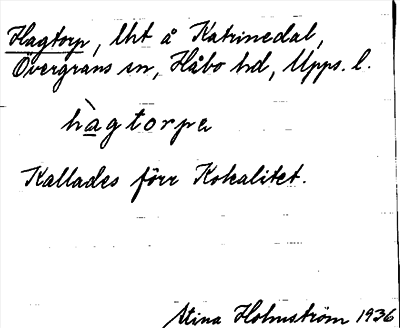 Hagtorp, lht å Katrinedal,
Övergrans sn, Håbo hd, Upps. l.
hàgtorpə
Kallades förr Kokalitet.
Stina Holmström 1936